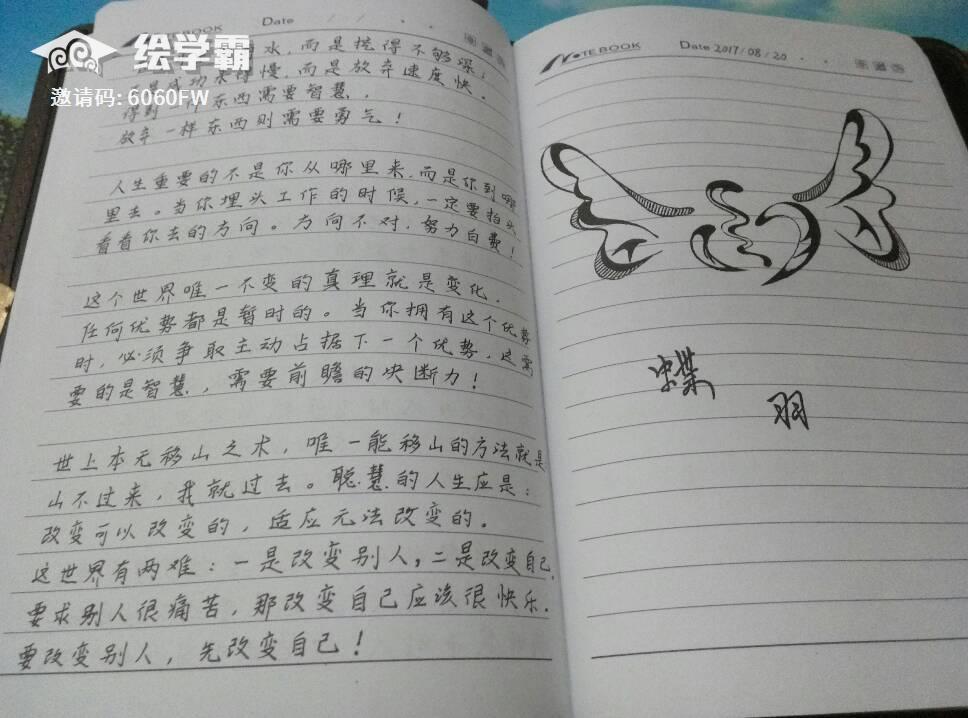 绘学霸
邀请码: 6060FW
NOTEBOOK Date / /
水,而是挖得不够深;
成功来得慢,而是放弃速度快。
得到一样东西需要智慧,
放弃一样东西则需要勇气!
人生重要的不是你从哪里来,而是你到哪
里去。当你埋头工作的时候,一定要抬头
看看你去的方向。方向不对,努力白费!
这个世界唯一不变的真理就是变化,
任何优势都是暂时的。当你拥有这个优势
时,必须争取主动占据下一个优势,这需
要的是智慧,需要前瞻的决断力!
世上本无移山之术,唯一能移山的方法就是
山不过来,我就过去。聪慧的人生应是:
改变可以改变的,适应无法改变的。
这世界有两难:一是改变别人,二是改变自己,
要求别人很痛苦,那改变自己应该很快乐.
要改变别人,先改变自己!
NOTEBOOK Date 2017/08/20
蝶
羽